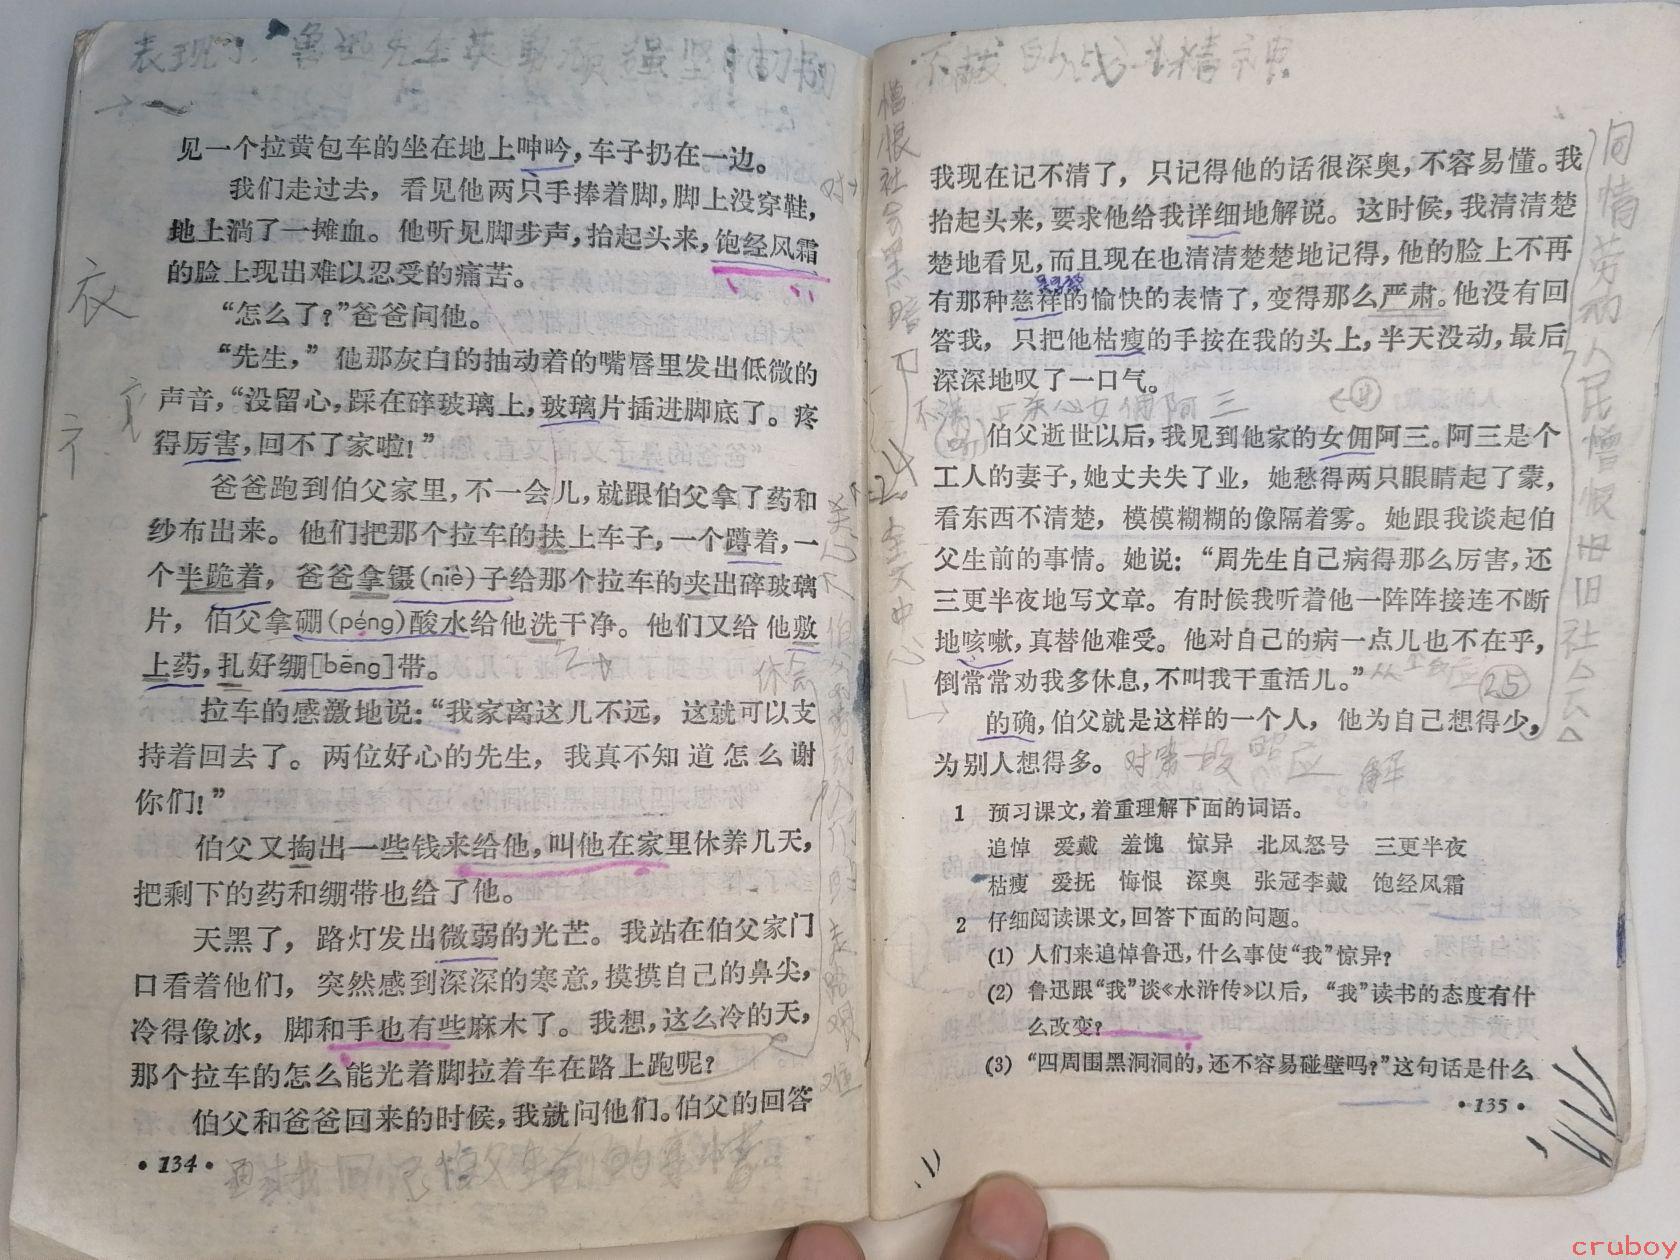 表现了鲁迅先生英勇顽强坚韧
见一个拉黄包车的坐在地上呻吟，车子扔在一边。
我们走过去，看见他两只手捧着脚，脚上没穿鞋，
地上淌了一摊血。他听见脚步声，抬起头来，饱经风霜
的脸上现出难以忍受的痛苦。
“怎么了？”爸爸问他。
“先生，”他那灰白的抽动着的嘴唇里发出低微的
声音，“没留心，踩在碎玻璃上，玻璃片插进脚底了。疼
得厉害，回不了家啦！”
爸爸跑到伯父家里，不一会儿，就跟伯父拿了药和
纱布出来。他们把那个拉车的扶上车子，一个蹲着，一
个半跪着，爸爸拿镊(niè)子给那个拉车的夹出碎玻璃
片，伯父拿硼(péng)酸水给他洗干净。他们又给他敷
上药，扎好绷[bēng]带。
拉车的感激地说：“我家离这儿不远，这就可以支
持着回去了。两位好心的先生，我真不知道怎么谢
你们！”
伯父又掏出一些钱来给他，叫他在家里休养几天，
把剩下的药和绷带也给了他。
天黑了，路灯发出微弱的光芒。我站在伯父家门
口看着他们，突然感到深深的寒意，摸摸自己的鼻尖，
冷得像冰，脚和手也有些麻木了。我想，这么冷的天，
那个拉车的怎么能光着脚拉着车在路上跑呢？
伯父和爸爸回来的时候，我就问他们。伯父的回答
•134•
衣
不拔的战斗精神
憎恨社会黑暗
我现在记不清了，只记得他的话很深奥，不容易懂。我
抬起头来，要求他给我详细地解说。这时候，我清清楚
楚地看见，而且现在也清清楚楚地记得，他的脸上不再
有那种慈祥的愉快的表情了，变得那么严肃。他没有回
答我，只把他枯瘦的手按在我的头上，半天没动，最后
深深地叹了一口气。
女佣阿三
伯父逝世以后，我见到他家的女佣阿三。阿三是个
工人的妻子，她丈夫失了业，她愁得两只眼睛起了蒙，
看东西不清楚，模模糊糊的像隔着雾。她跟我谈起伯
父生前的事情。她说：“周先生自己病得那么厉害，还
三更半夜地写文章。有时候我听着他一阵阵接连不断
地咳嗽，真替他难受。他对自己的病一点儿也不在乎，
倒常常劝我多休息，不叫我干重活儿。”
25
的确，伯父就是这样的一个人，他为自己想得少，
为别人想得多。
对第一段照应
解
1 预习课文，着重理解下面的词语。
追悼 爱戴 羞愧 惊异 北风怒号 三更半夜
枯瘦 爱抚 悔恨 深奥 张冠李戴 饱经风霜
2 仔细阅读课文，回答下面的问题。
(1) 人们来追悼鲁迅，什么事使“我”惊异？
(2) 鲁迅跟“我”谈《水浒传》以后，“我”读书的态度有什
么改变？
(3) “四周围黑洞洞的，还不容易碰壁吗？”这句话是什么
•135•
同情劳动人民憎恨旧社会
cruboy